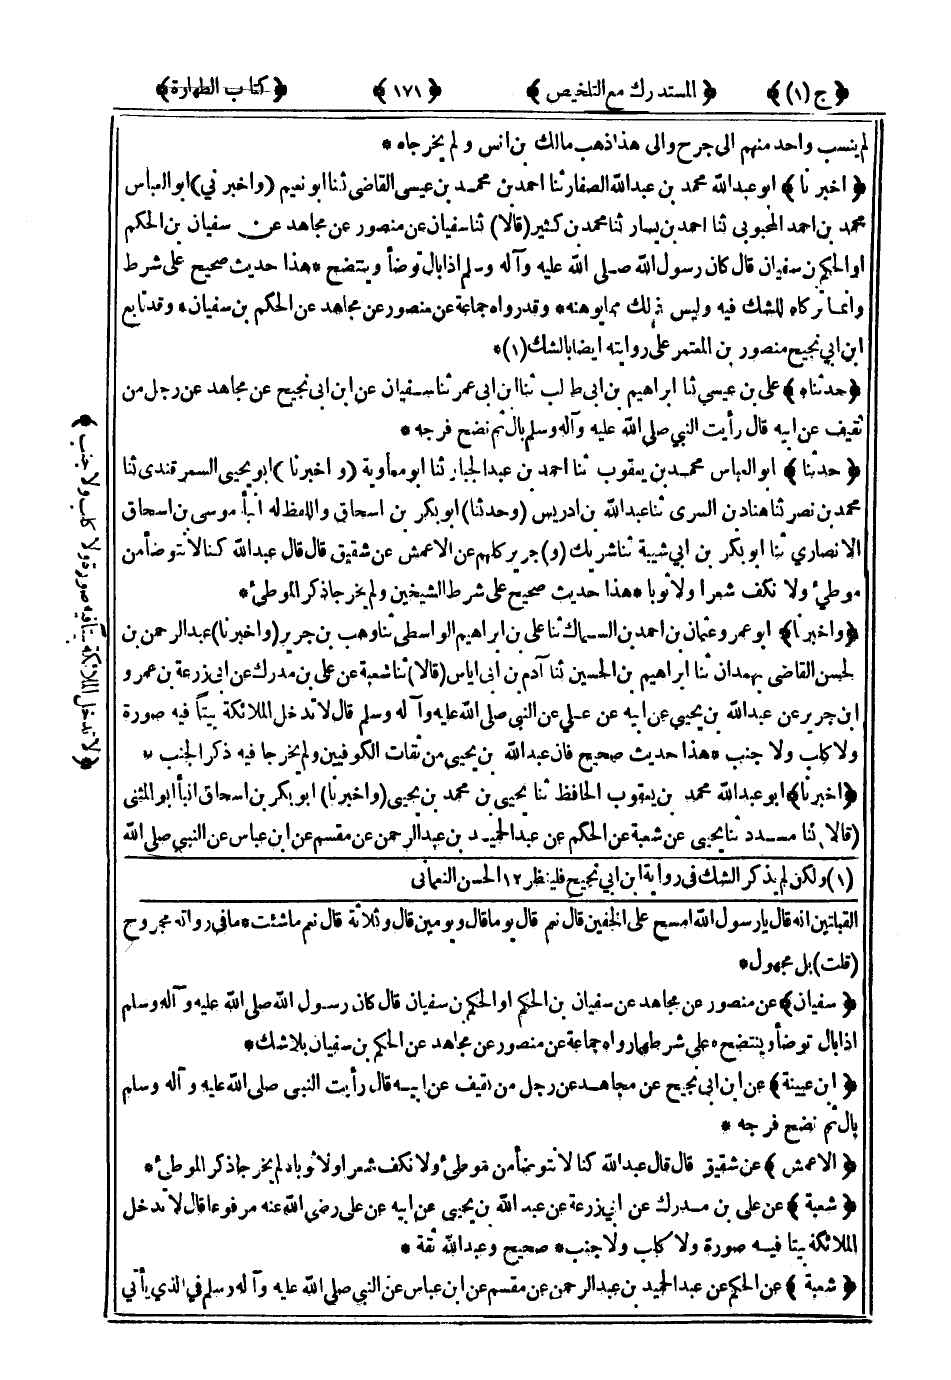 ﴿ ج (١) ﴾ ﴿ المستدرك مع التلخيص ﴾ ﴿ ١٧١ ﴾ ﴿ كتاب الطهارة ﴾
لم ينسب واحد منهم الى جرح والى هذا ذهب مالك بن انس و لم يخرجاه *
﴿ اخبرنا ﴾ ابو عبد الله محمد بن عبد الله الصفار ثنا احمد بن محمد بن عيسى القاضى ثنا ابو نعيم (واخبرني) ابو العباس
محمد بن احمد المحبوبى ثنا احمد بن يسار ثنا محمد بن كثير (قالا) ثنا سفيان عن منصور عن مجاهد عن سفيان بن الحكم
او الحكم بن سفيان قال كان رسول الله صلى الله عليه وآله وسلم اذا بال توضأ وينتضح * هذا حديث صحيح على شرط
وانما تركاه للشك فيه وليس ذلك مما يوهنه * وقد رواه جماعة عن منصور عن مجاهد عن الحكم بن سفيان * وقد تابع
ابن ابي نجيح منصور بن المعتمر على روايته ايضا بالشك (١) *
﴿ حدثناه ﴾ على بن عيسى ثنا ابراهيم بن ابى طالب ثنا ابن ابى عمر ثنا سفيان عن ابن ابى نجيح عن مجاهد عن رجل من
ثقيف عن ابيه قال رأيت النبي صلى الله عليه وآله وسلم بال ثم نضح فرجه *
﴿ حدثنا ﴾ ابو العباس محمد بن يعقوب ثنا احمد بن عبد الجبار ثنا ابو معاوية (و اخبرنا) ابو يحيى السمرقندى ثنا
محمد بن نصر ثنا هناد بن السرى ثنا عبد الله بن ادريس (وحدثنا) ابو بكر بن اسحاق واللفظ له انبأ موسى بن اسحاق
الانصاري ثنا ابو بكر بن ابي شيبة ثنا شريك (و) جرير كلهم عن الاعمش عن شقيق قال قال عبد الله كنا لا نتوضأ من
موطئ ولا نكف شعرا ولا ثوبا * هذا حديث صحيح على شرط الشيخين ولم يخرجا ذكر الموطئ *
﴿ واخبرنا ﴾ ابو عمرو عثمان بن احمد بن السماك ثنا على بن ابراهيم الواسطى ثنا وهب بن جرير (واخبرنا) عبد الرحمن بن
لحسن القاضى بهمدان ثنا ابراهيم بن الحسين ثنا آدم بن ابى اياس (قالا) ثنا شعبة عن على بن مدرك عن ابى زرعة بن عمرو
ابن جرير عن عبد الله بن يحيى عن ابيه عن علي عن النبي صلى الله عليه وآله وسلم قال لا تدخل الملائكة بيتاً فيه صورة
ولا كلب ولا جنب * هذا حديث صحيح فان عبد الله بن يحيى من ثقات الكوفيين ولم يخرجا فيه ذكر الجنب *
﴿ اخبرنا ﴾ ابو عبد الله محمد بن يعقوب الحافظ ثنا يحيى بن محمد بن يحيى (واخبرنا) ابو بكر بن اسحاق انبأ ابو المثنى
(قالا) ثنا مسدد ثنا يحيى عن شعبة عن الحكم عن عبد الحميد بن عبد الرحمن عن مقسم عن ابن عباس عن النبي صلى الله
﴿ لا تدخل الملائكة بيتا فيه صورة ولا كلب ولا جنب ﴾
(١) ولكن لم يذكر الشك فى رواية ابن ابي نجيح فلينظر ١٢ الحسن النعمانى
القبلتين انه قال يا رسول الله امسح على الخفين قال نعم قال يوما قال ويومين قال وثلاثة قال نعم ما شئت * ما في رواته مجروح
(قلت) بل مجهول *
﴿ سفيان ﴾ عن منصور عن مجاهد عن سفيان بن الحكم او الحكم بن سفيان قال كان رسول الله صلى الله عليه وآله وسلم
اذا بال توضأ وينتضح * على شرطهما رواه جماعة عن منصور عن مجاهد عن الحكم بن سفيان بلا شك *
﴿ ابن عيينة ﴾ عن ابن ابى نجيح عن مجاهد عن رجل من ثقيف عن ابيه قال رأيت النبي صلى الله عليه وآله وسلم
بال ثم نضح فرجه *
﴿ الاعمش ﴾ عن شقيق قال قال عبد الله كنا لا نتوضأ من موطئ ولا نكف شعرا ولا ثوبا ولم يخرجا ذكر الموطئ *
﴿ شعبة ﴾ عن على بن مدرك عن ابي زرعة عن عبد الله بن يحيى عن ابيه عن على رضى الله عنه مرفوعا قال لا تدخل
الملائكة بيتا فيه صورة ولا كلب ولا جنب * صحيح وعبد الله ثقة *
﴿ شعبة ﴾ عن الحكم عن عبد الحميد بن عبد الرحمن عن مقسم عن ابن عباس عن النبي صلى الله عليه وآله وسلم في الذي يأتي